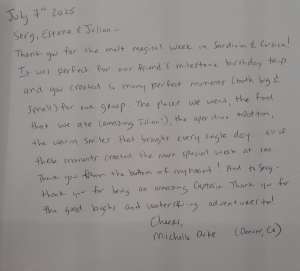 July 7th 2025
Sergi, Estana & Julian -
Thank you for the most magical week in Sardinia & Corsica!
It was perfect for our friend's milestone birthday trip
and you created so many perfect moments (both big &
small) for our group. The places we went, the food
that we ate (amazing Julian!), the aperitivo tradition,
the warm smiles that brought every single day. all of
these moments created the most special week at sea.
Thank you from the bottom of my heart! And to Sergi -
thank you for being an amazing captain. Thank you for
the good laughs and waterskiing adventures too!
Cheers,
Michelle (Denver, Co)